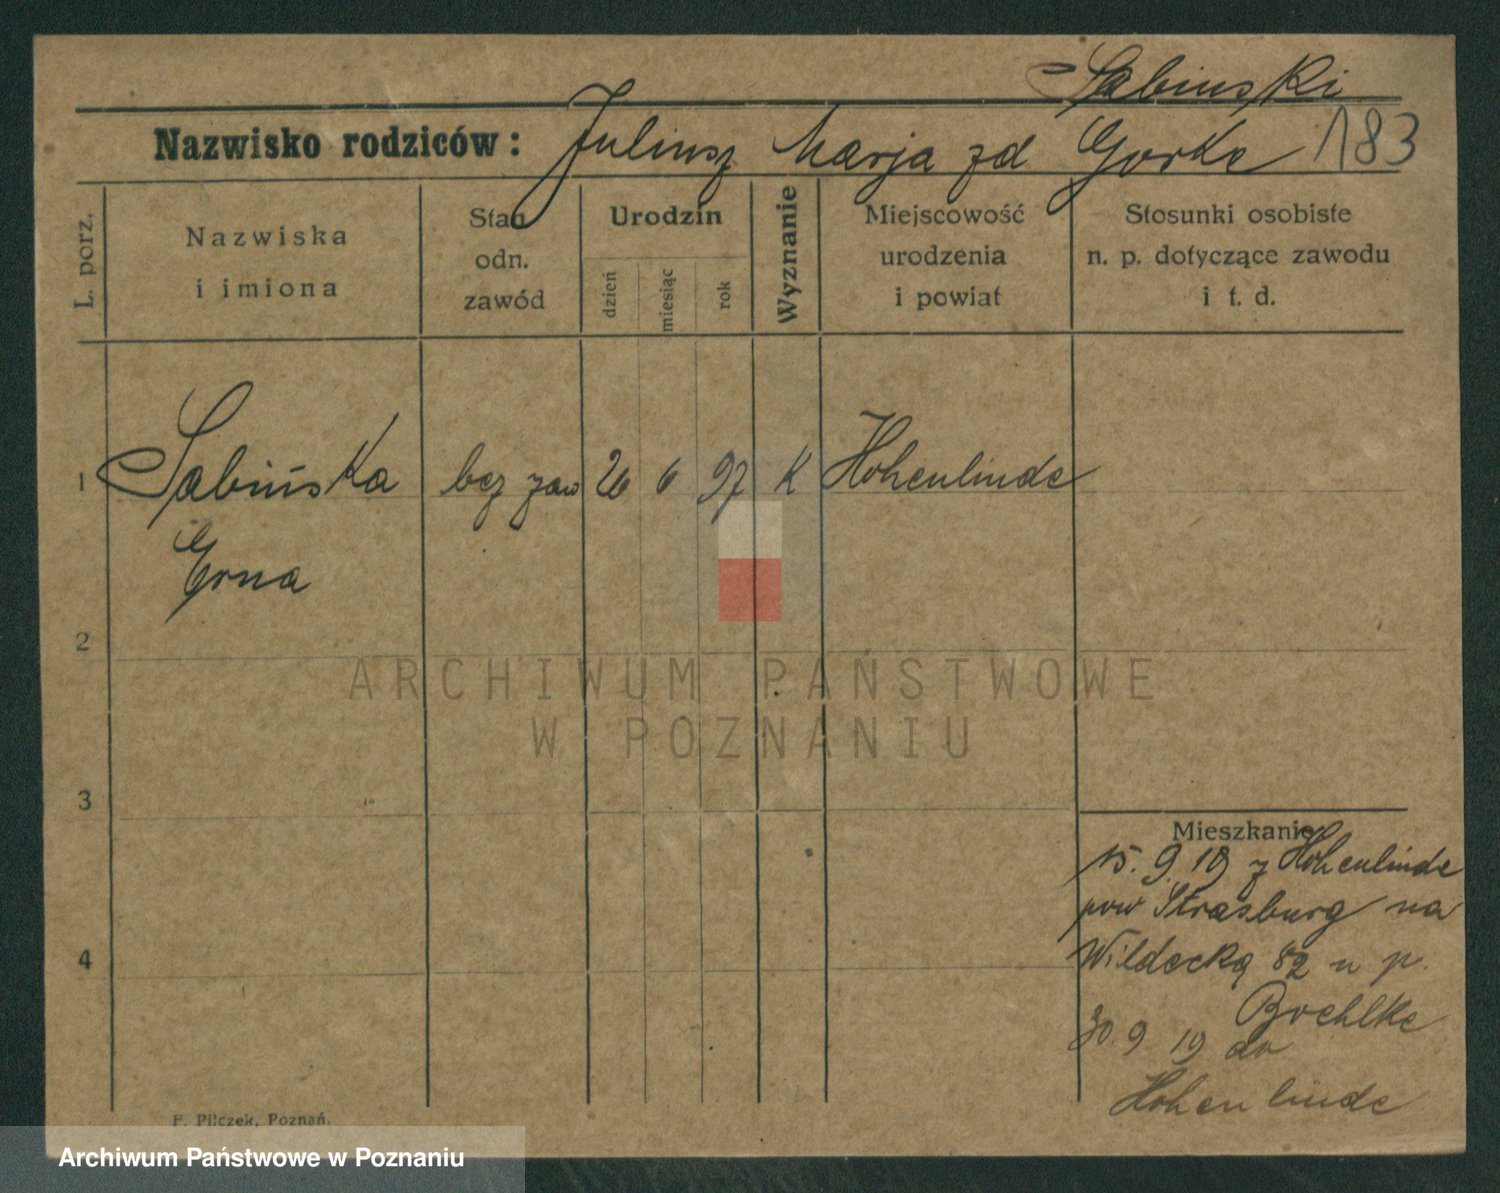 Sabinski
Nazwisko rodziców: Juliusz Marja zd Gorke 183
L. porz.
Nazwiska
i imiona
Stan
odn.
zawód
Urodzin
dzień
miesiąc
rok
Wyznanie
Miejscowość
urodzenia
i powiat
Stosunki osobiste
n. p. dotyczące zawodu
i t. d.
1 Sabińska bez zaw 26 6 97 K Hohenlinde
Erna
2
ARCHIWUM PAŃSTWOWE
W POZNANIU
3
Mieszkanie
15. 9. 19 z Hohenlinde
pow Strasburg na
4 Wildecką 82 u p.
Boehlke
30. 9 19 do
Hohenlinde
F. Pilczek, Poznań.
Archiwum Państwowe w Poznaniu